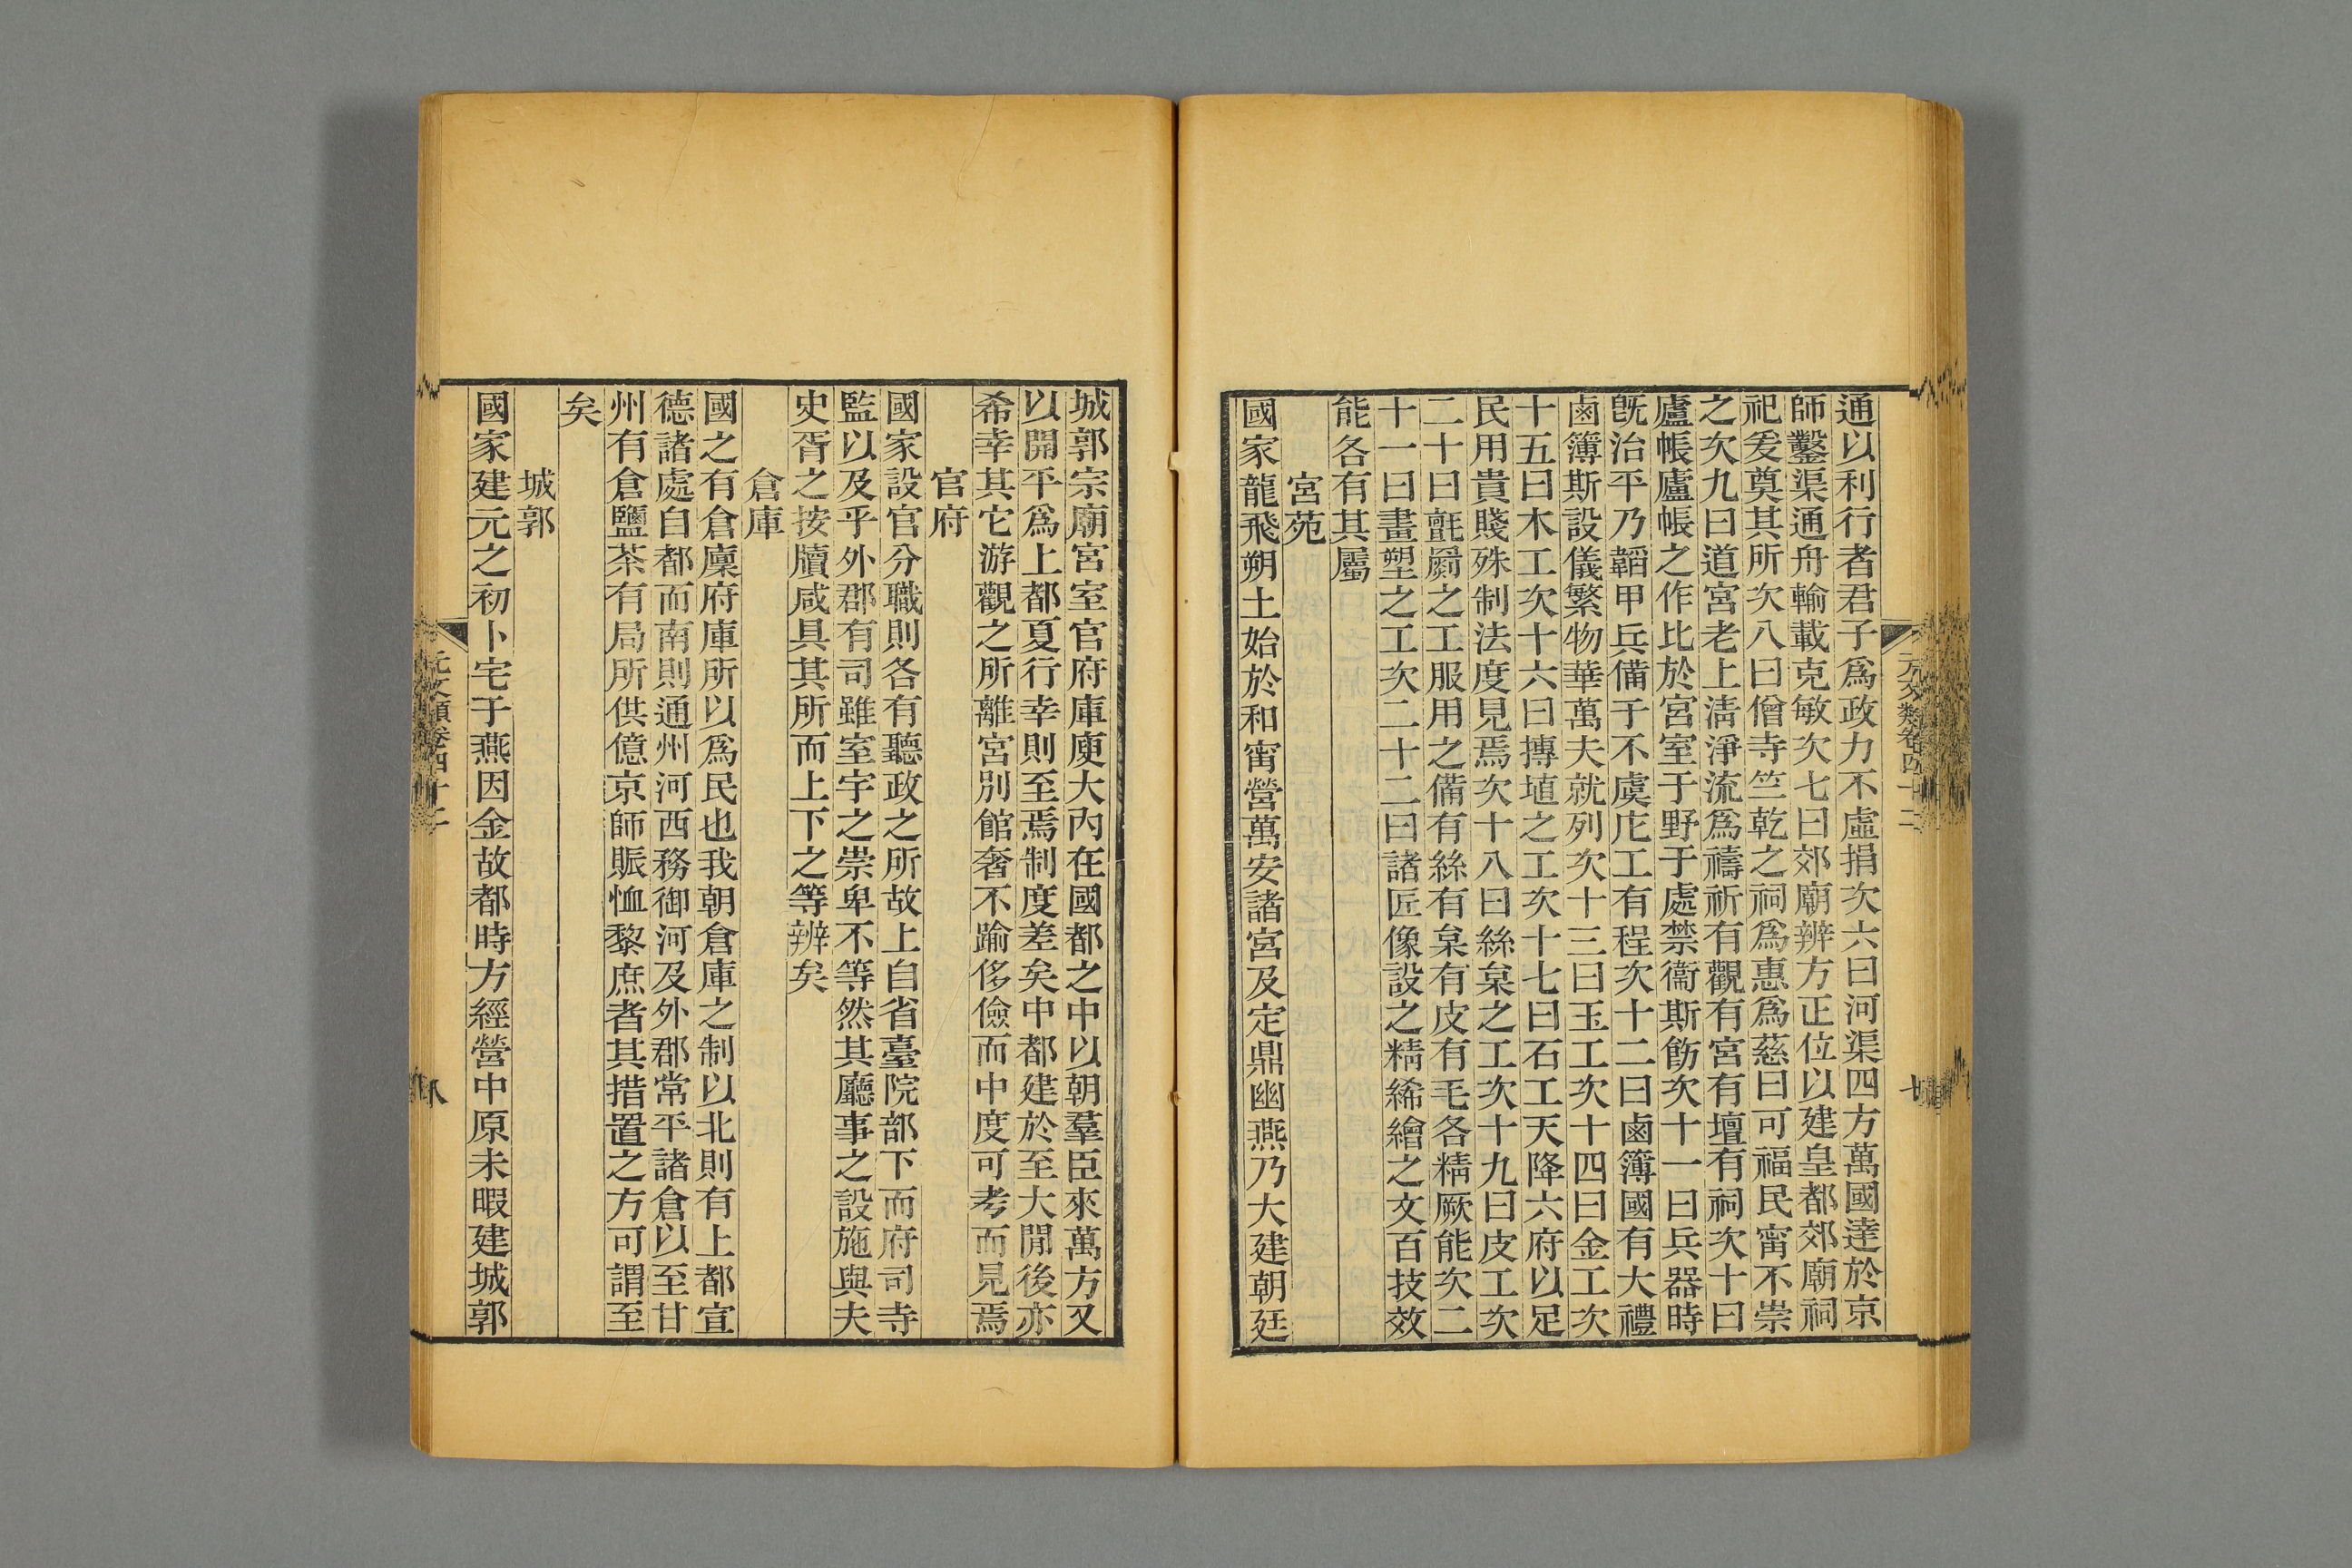 通以利行者君子爲政力不虛捐次六曰河渠四方萬國達於京
師鑿渠通舟輸載克敏次七曰郊廟辨方正位以建皇都郊廟祠
祀爰奠其所次八曰僧寺竺乾之祠爲惠爲慈曰可福民甯不崇
之次九曰道宮老上淸淨流爲禱祈有觀有宮有壇有祠次十曰
廬帳廬帳之作比於宮室于野于處禁衞斯飭次十一曰兵器時
旣治平乃韜甲兵備于不虞庀工有程次十二曰鹵簿國有大禮
鹵簿斯設儀繁物華萬夫就列次十三曰玉工次十四曰金工次
十五曰木工次十六曰摶埴之工次十七曰石工天降六府以足
民用貴賤殊制法度見焉次十八曰絲枲之工次十九曰皮工次
二十曰氈罽之工服用之備有絲有枲有皮有毛各精厥能次二
十一曰畫塑之工次二十二曰諸匠像設之精絺繪之文百技效
能各有其屬
宮苑
國家龍飛朔土始於和甯營萬安諸宮及定鼎幽燕乃大建朝廷
城郭宗廟宮室官府庫庾大內在國都之中以朝羣臣來萬方又
以開平爲上都夏行幸則至焉制度差矣中都建於至大閒後亦
希幸其它游觀之所離宮別館奢不踰侈儉而中度可考而見焉
官府
國家設官分職則各有聽政之所故上自省臺院部下而府司寺
監以及乎外郡有司雖室宇之崇卑不等然其廳事之設施與夫
史胥之按牘咸具其所而上下之等辨矣
倉庫
國之有倉廩府庫所以爲民也我朝倉庫之制以北則有上都宣
德諸處自都而南則通州河西務御河及外郡常平諸倉以至甘
州有倉鹽茶有局所供億京師賑恤黎庶者其措置之方可謂至
矣
城郭
國家建元之初卜宅于燕因金故都時方經營中原未暇建城郭
元文類卷四十二